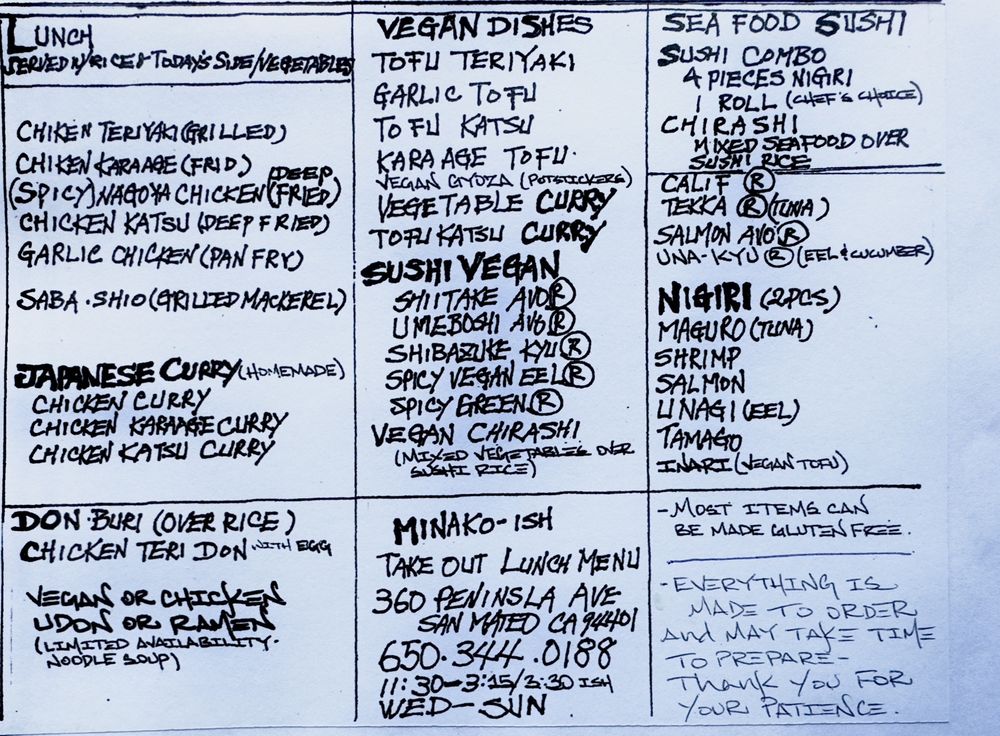 LUNCH
SERVED W/RICE & TODAY'S SIDE/VEGETABLES
CHIKEN TERIYAKI (GRILLED)
CHIKEN KARAAGE (FRID)
(SPICY) NAGOYA CHICKEN (DEEP FRIED)
CHICKEN KATSU (DEEP FRIED)
GARLIC CHICKEN (PAN FRY)
SABA·SHIO (GRILLED MACKEREL)
JAPANESE CURRY (HOMEMADE)
CHICKEN CURRY
CHICKEN KARAAGE CURRY
CHICKEN KATSU CURRY
DON·BURI (OVER RICE)
CHICKEN TERI DON WITH EGG
VEGAN OR CHICKEN
UDON OR RAMEN
(LIMITED AVAILABILITY·
NOODLE SOUP)
VEGAN DISHES
TOFU TERIYAKI
GARLIC TOFU
TOFU KATSU
KARA AGE TOFU·
VEGAN GYOZA (POTSTICKERS)
VEGETABLE CURRY
TOFU KATSU CURRY
SUSHI VEGAN
SHIITAKE AVO Ⓡ
UMEBOSHI AVO Ⓡ
SHIBAZUKE KYU Ⓡ
SPICY VEGAN EEL Ⓡ
SPICY GREEN Ⓡ
VEGAN CHIRASHI
(MIXED VEGETABLES OVER
SUSHI RICE)
MINAKO-ISH
TAKE OUT LUNCH MENU
360 PENINSLA AVE
SAN MATEO CA 94401
650·344·0188
11:30-3:15/3:30 ISH
WED-SUN
SEA FOOD SUSHI
SUSHI COMBO
4 PIECES NIGIRI
1 ROLL (CHEF'S CHOICE)
CHIRASHI
MIXED SEAFOOD OVER
SUSHI RICE
CALIF Ⓡ
TEKKA Ⓡ (TUNA)
SALMON AVO Ⓡ
UNA-KYU Ⓡ (EEL & CUCUMBER)
NIGIRI (2PCS)
MAGURO (TUNA)
SHRIMP
SALMON
UNAGI (EEL)
TAMAGO
INARI (VEGAN TOFU)
-MOST ITEMS CAN
BE MADE GLUTEN FREE.
-EVERYTHING IS
MADE TO ORDER
And MAY TAKE TIME
TO PREPARE-
Thank YOU FOR
YOUR PATIENCE.